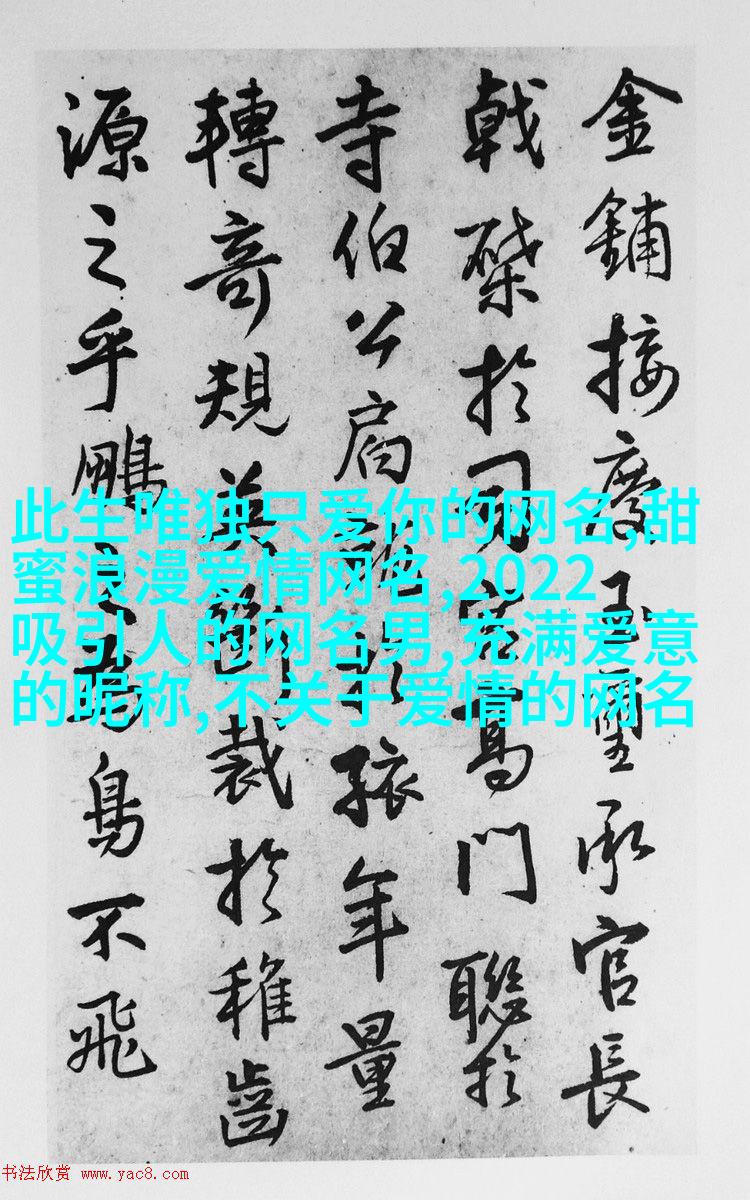 金鋪接慶玉璽承官長
戟於司高門聯於
寺伯公於孩年量
轉奇規英斷裁於稚齒
源之乎鵬之為鳥不飛
此生唯独只爱你的网名,甜
蜜浪漫爱情网名,2022
吸引人的网名男,充满爱意
的昵称,不关于爱情的网名
书法欣赏 www.yac8.com